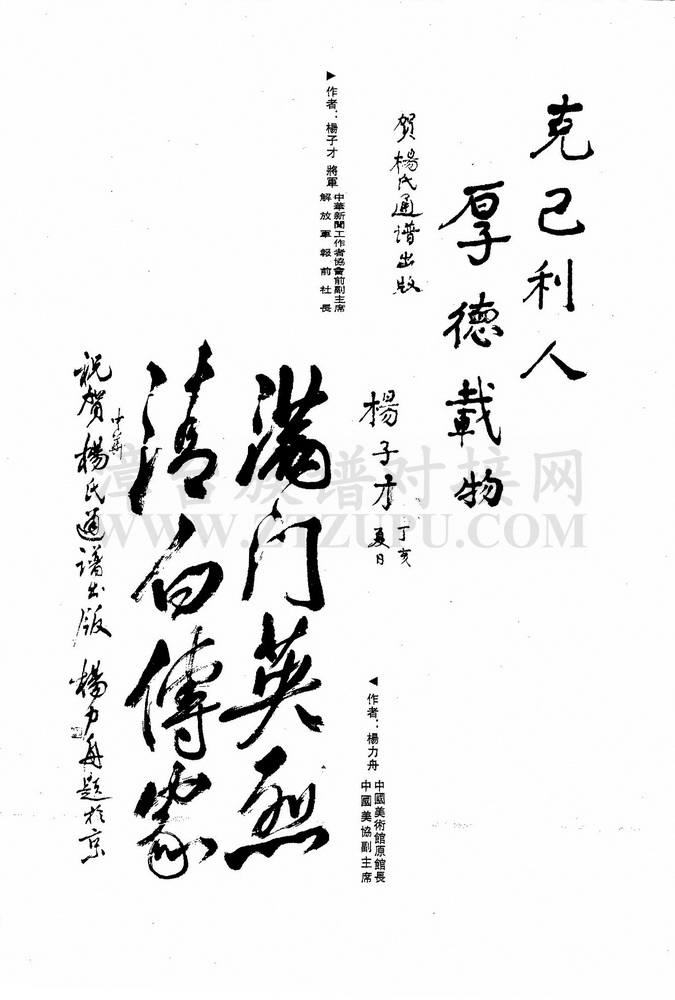 克己利人
厚德載物
賀楊氏通譜出版
楊子才
丁亥
夏日
▶作者：楊子才 將軍
中華新聞工作者協會前副主席
解放軍報前社長
滿門英烈
清白傳家
祝賀中華楊氏通譜出版 楊力舟題於京
◀作者：楊力舟
中國美術館原館長
中國美協副主席
漳台族谱对接网
WWW.ZTZUPU.COM